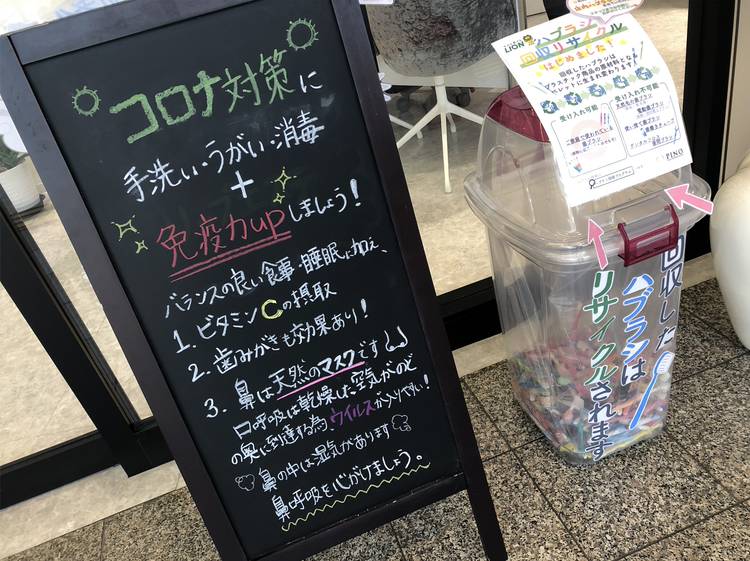 コロナ対策に
手洗い・うがい・消毒
+
免疫力upしましょう!
バランスの良い食事・睡眠に加え、
1. ビタミンCの摂取
2. 歯みがきも効果あり!
3. 鼻は天然のマスクです
口呼吸は乾燥した空気がのど
の奥に到達する為ウイルスが入りやすい!
鼻の中は湿気があります
鼻呼吸を心がけましょう。
LION
ハブラシ
回収リサイクル
はじめました!
回収したハブラシは
プラスチック商品の原材料となる
ペレットに生まれ変わります
受け入れ可能
受け入れ不可能
ご家庭で使われている
歯ブラシ
電動歯ブラシ
PINO
回収した
ハブラシは
リサイクルされます